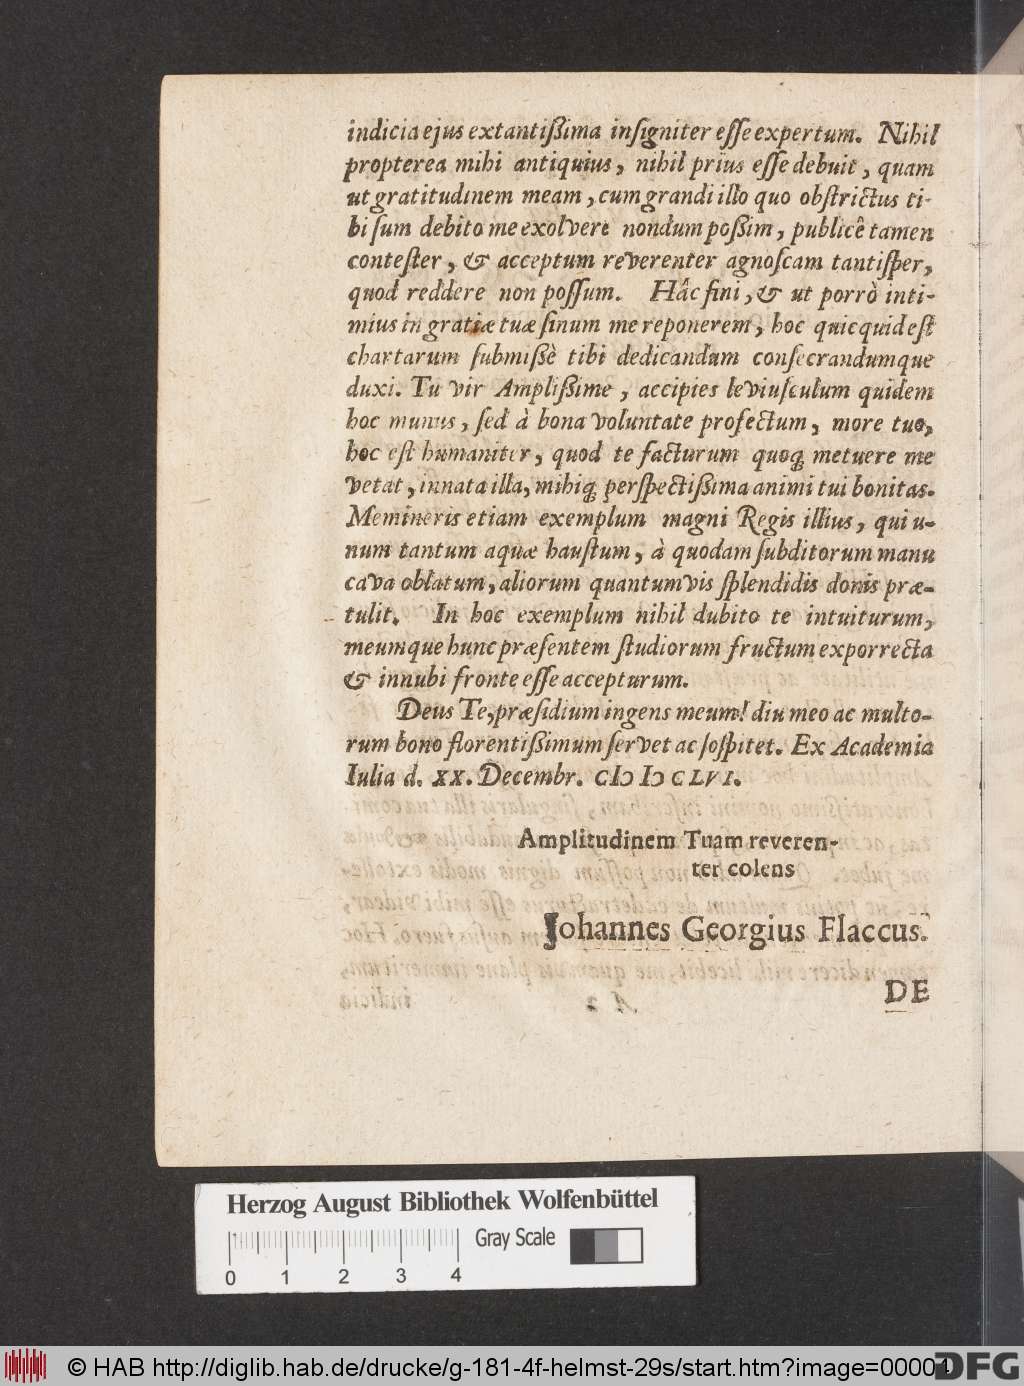 indicia ejus extantißima inſigniter eſſe expertum. Nihil
propterea mihi antiquius, nihil prius eſſe debuit, quam
ut gratitudinem meam, cum grandi illo quo obſtrictus ti-
bi ſum debito me exolvere nondum poßim, publicê tamen
conteſter, & acceptum reverenter agnoſcam tantiſper,
quod reddere non poſſum. Hâc fini, & ut porrò inti-
mius in gratiæ tuæ ſinum me reponerem, hoc quicquid eſt
chartarum ſubmißè tibi dedicandum conſecrandumque
duxi. Tu vir Amplißime, accipies leviuſculum quidem
hoc munus, ſed à bona voluntate profectum, more tuo,
hoc eſt humaniter, quod te facturum quoq; metuere me
vetat, innata illa, mihiq; perſpectißima animi tui bonitas.
Memineris etiam exemplum magni Regis illius, qui u-
num tantum aquæ hauſtum, à quodam ſubditorum manu
cava oblatum, aliorum quantumvis ſplendidis donis præ-
tulit. In hoc exemplum nihil dubito te intuiturum,
meumque hunc præſentem ſtudiorum fructum exporrecta
& innubi fronte eſſe accepturum.
Deus Te, præſidium ingens meum! diu meo ac multo-
rum bono florentißimum ſervet ac ſoſpitet. Ex Academia
Iulia d. XX. Decembr. CIƆ IƆ CLVI.
Amplitudinem Tuam reveren-
ter colens
Johannes Georgius Flaccus.
DE
Herzog August Bibliothek Wolfenbüttel
Gray Scale
0 1 2 3 4
© HAB http://diglib.hab.de/drucke/g-181-4f-helmst-29s/start.htm?image=00004
DFG